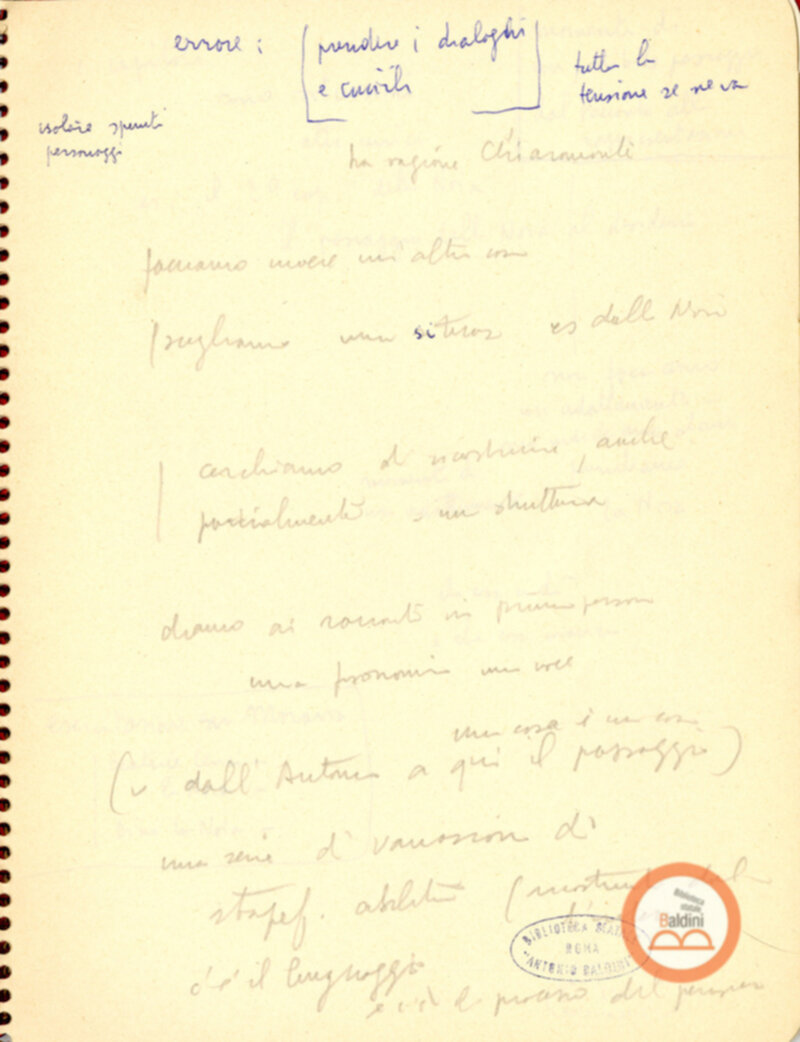 errore : prendere i dialoghi
e cucirli
tutta la
tensione se ne va
isolare spunti
personaggi
ha ragione Chiaromonti
facciamo invece un'altra cosa
scegliamo una situaz es dalla Noia
cerchiamo di ricostruire, anche
parzialmente, una struttura
diamo ai racconti in prima persona
una fisionomia una voce
una cosa è una cosa
(v dall'Antonio a qui il passaggio)
una serie di variazioni di
abilità (
c'è il linguaggio
e c'è il processo del pensiero
BIBLIOTECA STATALE
ROMA
"ANTONIO BALDINI"
Biblioteca
statale
Baldini